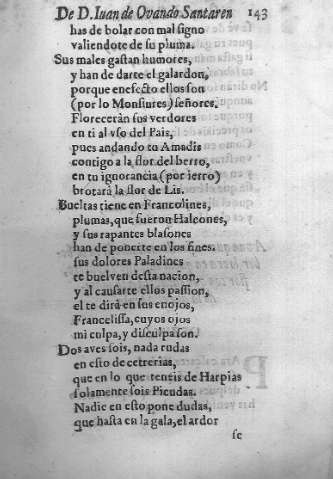 De D. Iuan de Ovando Santaren 143
has de bolar con mal signo
valiendote de su pluma.
Sus males gastan humores,
y han de darte el galardon,
porque enefecto ellos son
(por lo Monsiures) señores.
Floreceràn sus verdores
en ti al vso del Pais,
pues andando tu Amadis
contigo a la flor del berro,
en tu ignorancia (por ierro)
brotarà la flor de Lis.
Bueltas tiene en Francolines,
plumas, que fueron Halcones,
y sus rapantes blasones
han de ponerte en los fines.
sus dolores Paladines
te buelven desta nacion,
y al causarte ellos passion,
el te dirà en sus enojos,
Francelissa, cuyos ojos
mi culpa, y disculpa son.
Dos aves sois, nada rudas
en esto de cetrerias,
que en lo que teneis de Harpias
solamente sois Picudas.
Nadie en esto pone dudas,
que hasta en la gala, el ardor
se